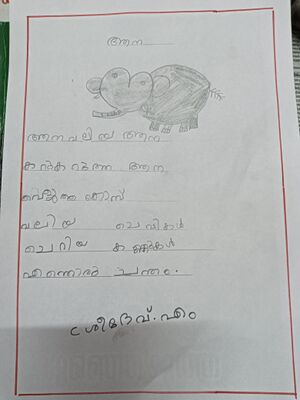 ആന
ആന വലിയ ആന
കറുകറുത്ത ആന
വെളുത്ത കൊമ്പ്
വലിയ ചെവികൾ
ചെറിയ കണ്ണുകൾ
എന്തൊരു ചന്തം.
ശ്രീദേവ്. എം